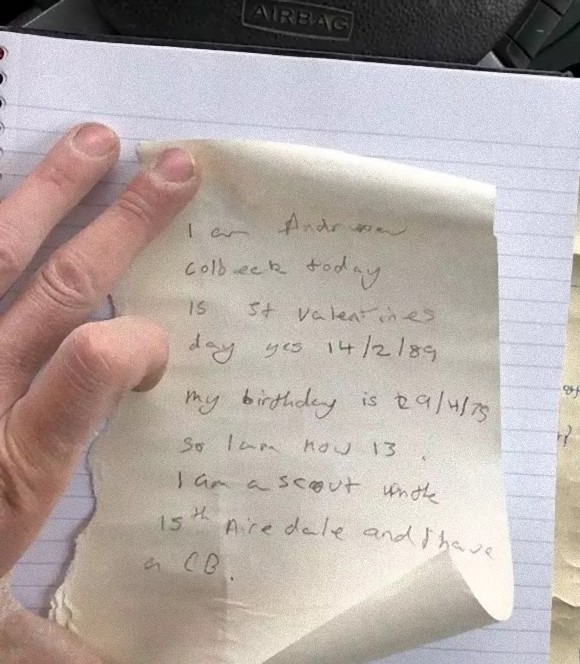 AIRBAG
I am Andrew
Colbeck today
is St valentines
day yes 14/2/89
my birthday is 29/4/75
so I am now 13.
I am a scout in the
15th Airedale and I have
a CB.